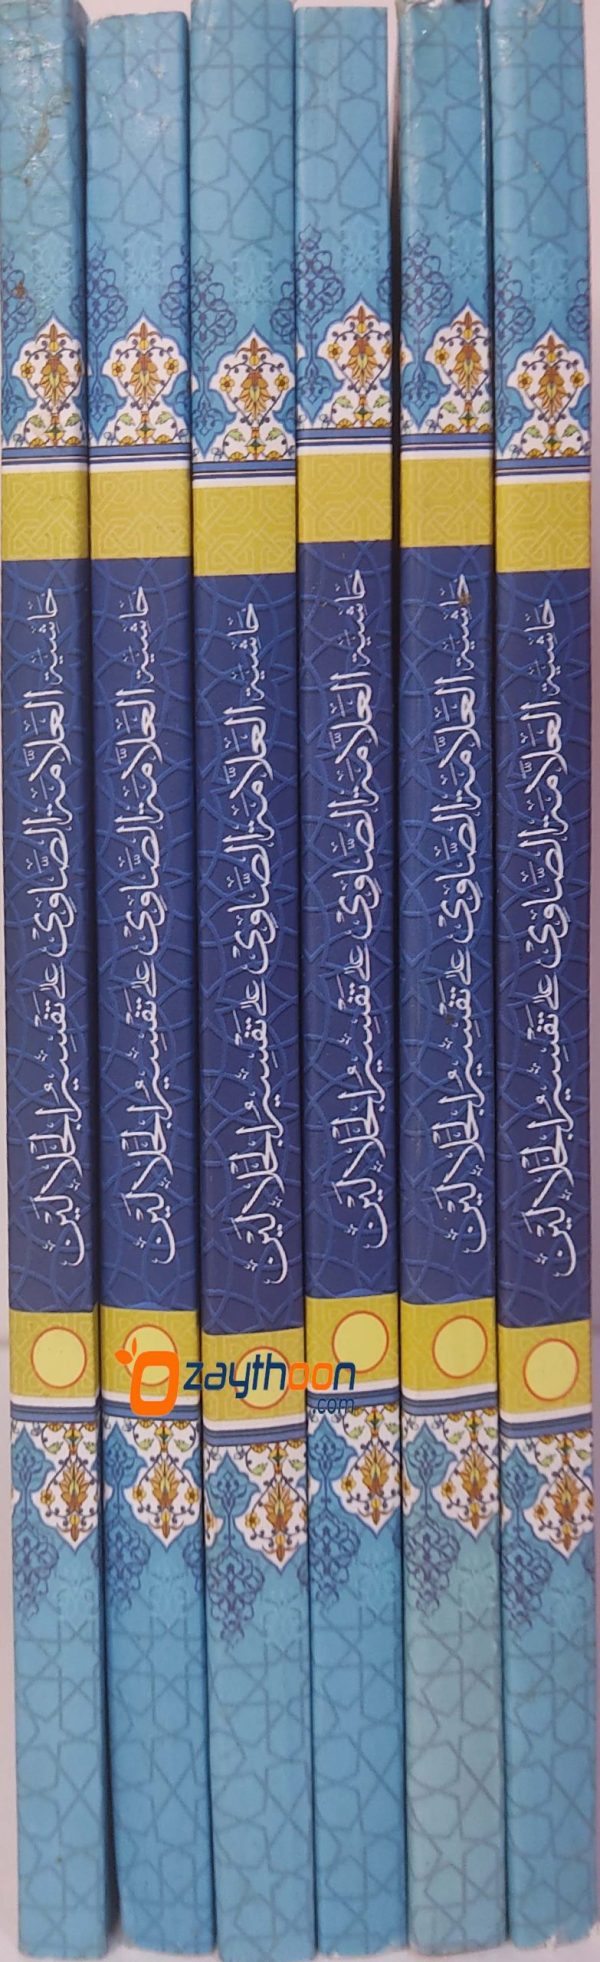 حاشية العلامة الصاوي على تفسير الجلالين
حاشية العلامة الصاوي على تفسير الجلالين
حاشية العلامة الصاوي على تفسير الجلالين
حاشية العلامة الصاوي على تفسير الجلالين
حاشية العلامة الصاوي على تفسير الجلالين
حاشية العلامة الصاوي على تفسير الجلالين
zaythoon
.com